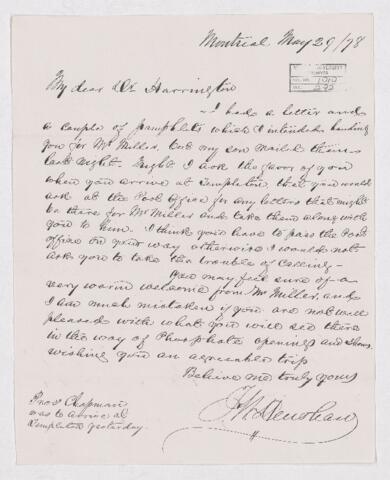 Montreal May 29/78
My dear Dr Harrington
I had a letter and
a couple of pamphlets which I intended handing
you for Mr Miller, but my son mailed them
last night. Might I ask the favor of you
when you arrive at Templeton, that you would
ask at the Post Office for any letters that might
be there for Mr Miller and take them along with
you to him. I think you have to pass the Post
office on your way otherwise I would not
ask you to take the trouble of calling—
You may feel sure of a
very warm welcome from Mr Miller, and
I am much mistaken if you are not well
pleased with what you will see there
in the way of Phosphate openings and
wishing you an agreeable trip
Believe me truly yours
Henshaw
Prof Chapman
was to arrive at
Templeton yesterday.